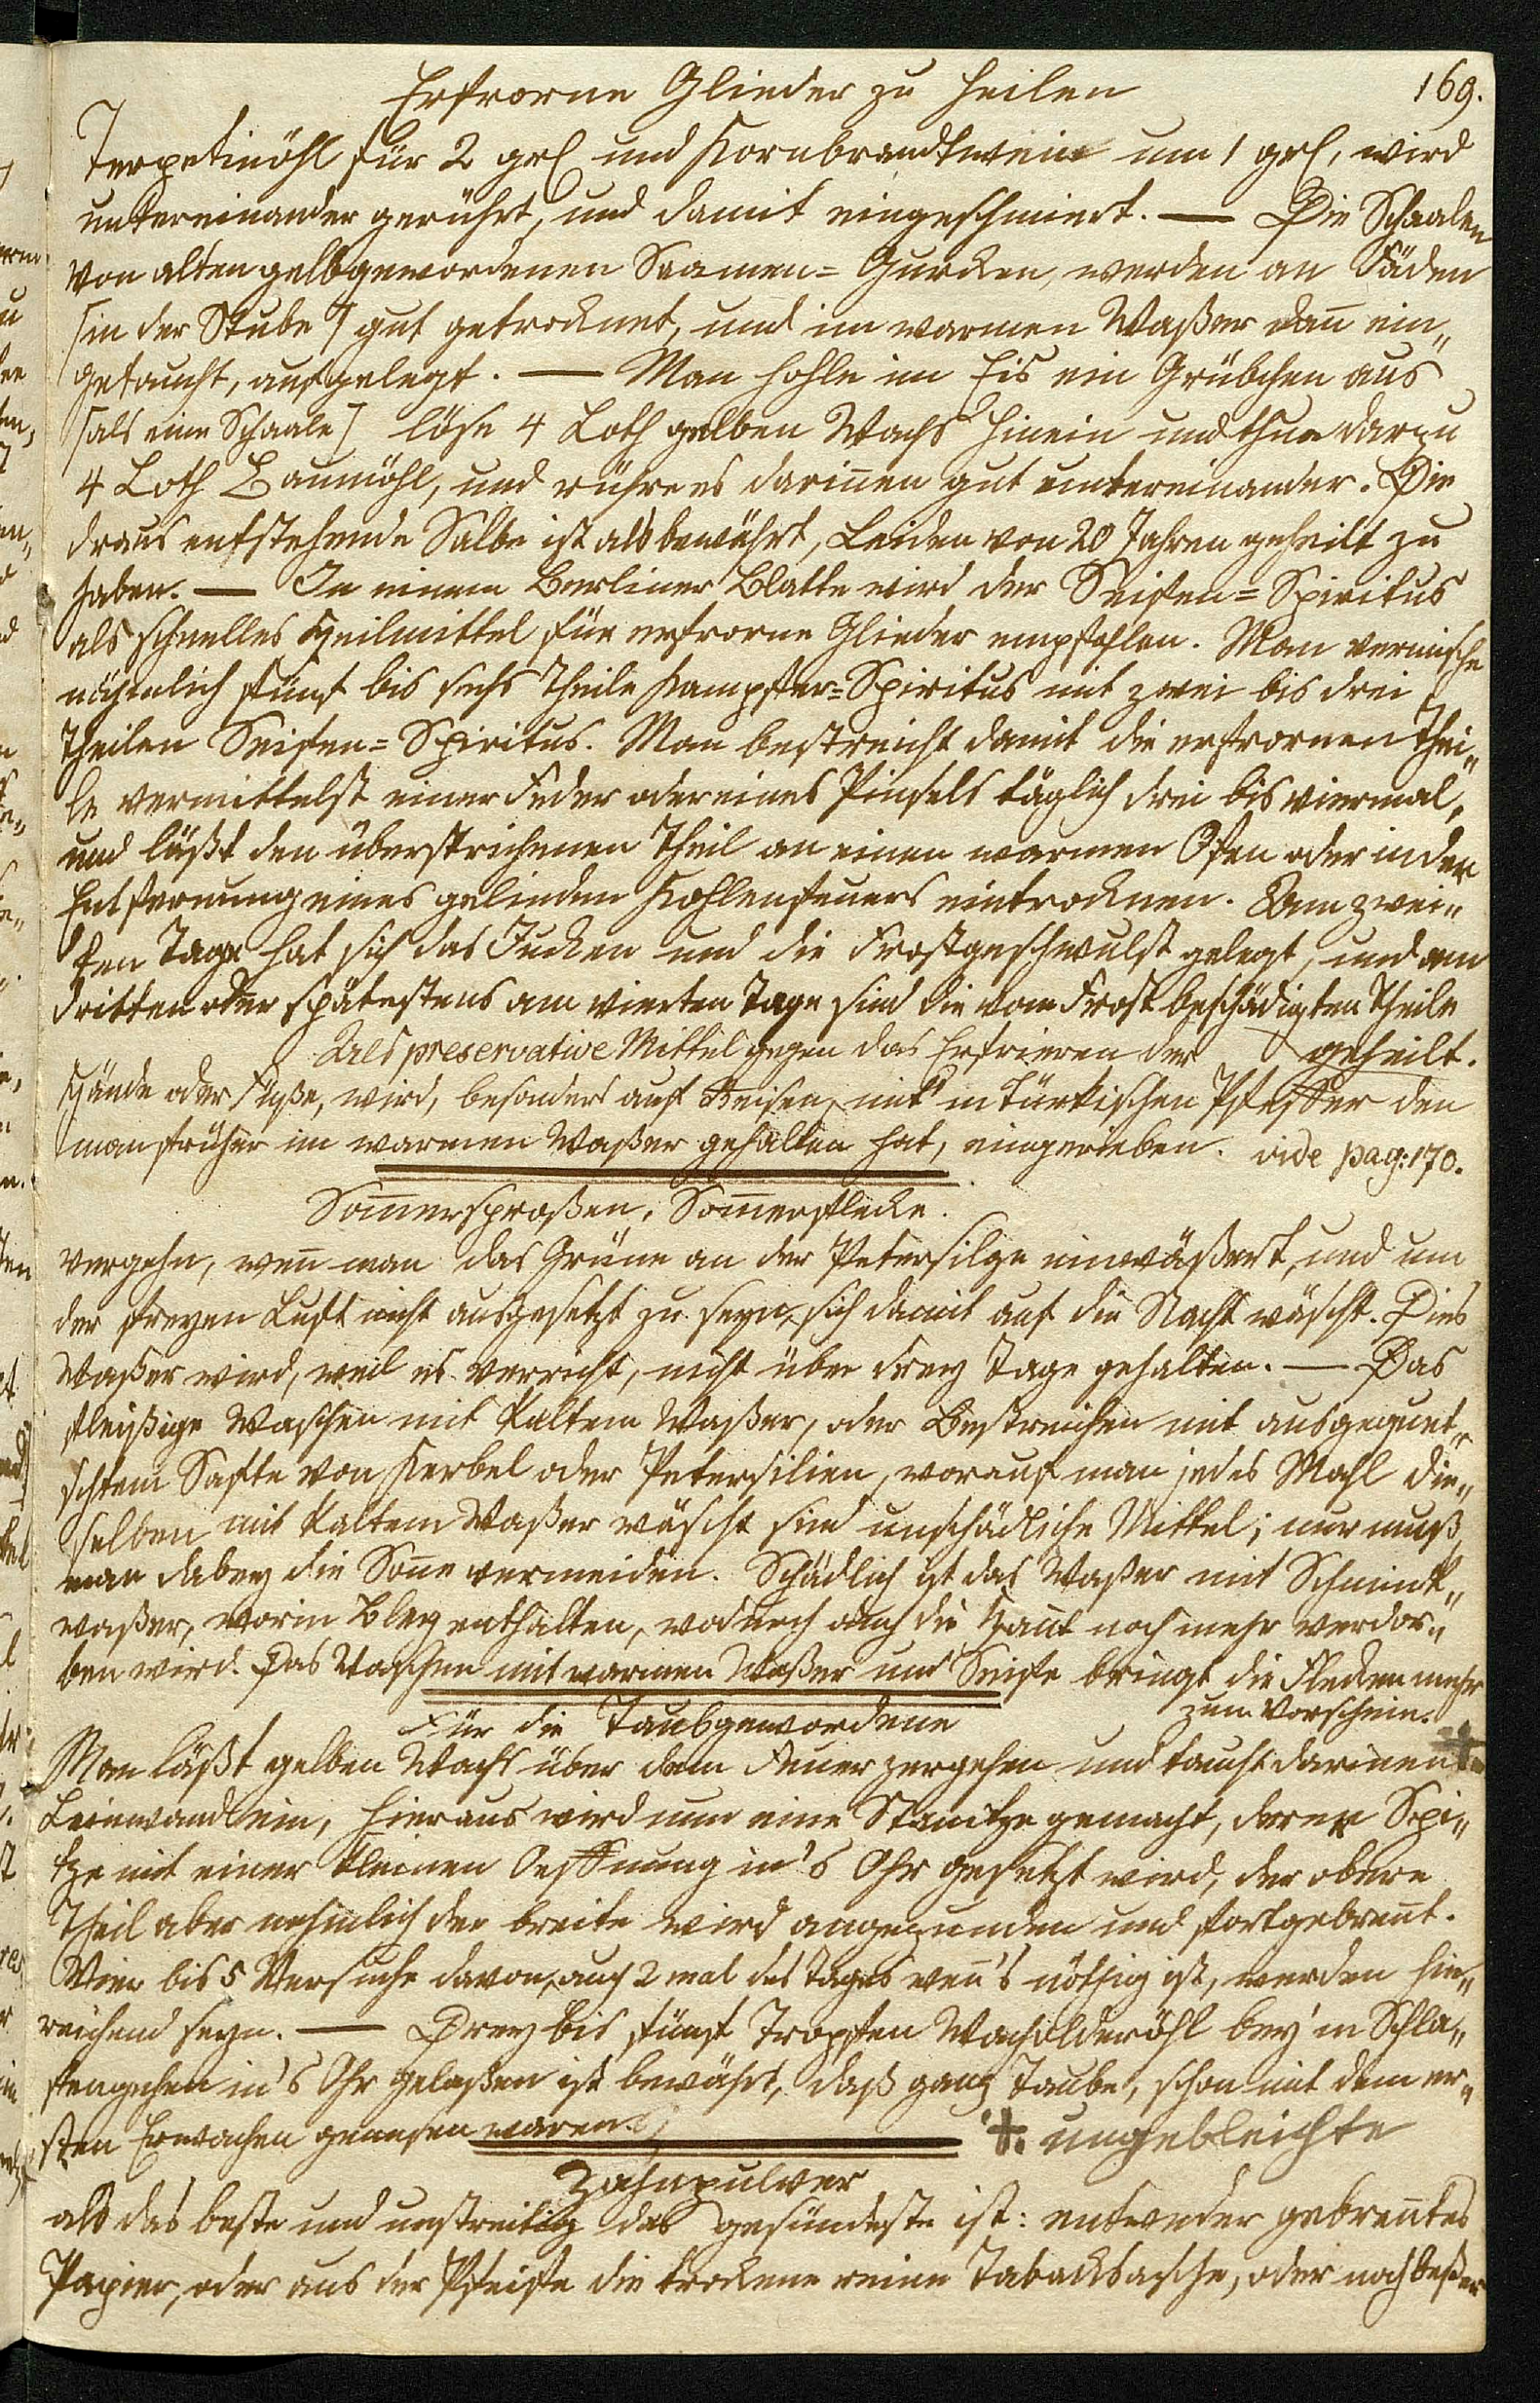 169.
Erfrorne Glieder zu heilen
Terpetinöhl für 2 grl und Kornbrandtwein um 1 grl, wird
untereinander gerührt, und damit eingeschmiert. — Die Schaalen
von alten gelbgewordenen Saamen= Gurcken, werden an Fäden
[in der Stube] gut getrocknet, und im warmen Waßer dan̄ ein„
getaucht, aufgelegt. — Man hohle im Eis ein Grübchen aus
[als eine Schaale] löse 4 Loth gelben Wachs hinein und thue darzu
4 Loth Baumöhl, und rühre es darin̄en gut untereinander. Die
draus entstehende Salbe ist als bewährt, Leiden von 20 Jahren geheilt zu
haben. — In einem Berliner Blatte wird der Seifen=Spiritus
als schnelles Heilmittel für erfrorne Glieder empfohlen. Man vermische
nähmlich fünf bis sechs Theile Kampfer=Spiritus mit zwei bis drei
Theilen Seifen=Spiritus. Man bestreicht damit die erfrornen Thei„
le vermittelst einer Feder oder eines Pinsels täglich drei bis viermal,
und läßt den überstrichenen Theil an einen warmen Ofen oder in der
Entfernung eines gelinden Kohlenfeuers eintrocknen. Am zwei„
ten Tage hat sich das Jucken und die Frostgeschwulst gelegt, und am
dritten oder spätestens am vierten Tage sind die vom Frost beschädigten Theile
geheilt.
Als preservative Mittel gegen das Erfrieren der
Hände oder Füße, wird, besonders auf Reisen, mit'm türkischen Pfeffer den
man früher im warmen Waßer gehalten hat, eingerieben. vide pag: 170.
Som̄ersproßen, Som̄erflecke.
vergehn, wen̄ man das Grüne an der Petersilge einwäßert, und um
der freyen Luft nicht ausgesetzt zu seyn, sich damit auf die Nacht wäscht. Dies
Waßer wird, weil es verricht, nicht über drey Tage gehalten. — Das
fleißige Waschen mit kaltem Waßer, oder Bestreichen mit ausgequet„
schtem Safte von Kerbel oder Petersilien, worauf man jedes Mahl die„
selben mit kaltem Waßer wäscht sind unschädliche Mittel; nur muß
man dabey die Son̄e vermeiden. Schädlich ist das Waßer mit Schmink„
waßer, worin Bley enthalten, wodurch auch die Haut noch mehr verdor„
ben wird. Das Waschen mit warmen Waßer und Seife bringt die Flecken mehr
zum Vorschein.
Für die Taubgewordene
Man läßt gelben Wachs über dem Feuer zergehen und taucht darinen ‡
Leinwand ein, hieraus wird nun eine Stanitze gemacht, deren Spi„
tze mit einer kleinen Oeffnung in's Ohr gesetzt wird, der obere
Theil aber nehmlich der breite wird angezunden und fortgebren̄t.
Vier bis 5 Versuche davon, auch 2 mal des Tages wen̄'s nöthig ist, werden hin„
reichend seyn. — Drey bis fünf Tropfen Wacholderöhl bey'm Schla„
fengehen in's Ohr gelaßen ist bewährt, daß ganz Taube, schon mit dem er„
sten Erwachen genesen waren.
‡. ungebleichte
Zahnpulver
als das beste und unstreitig das gesündeste ist: entweder gebren̄tes
Papier, oder aus der Pfeife die trockene reine Tabacksasche, oder noch beßer